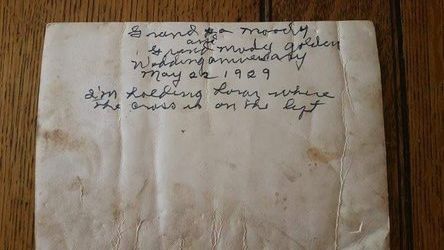 Grand pa moody
and
Grand mody golden
Wedding anniversary
May 22 1929
I'm holding Loran where
the cross is on the left